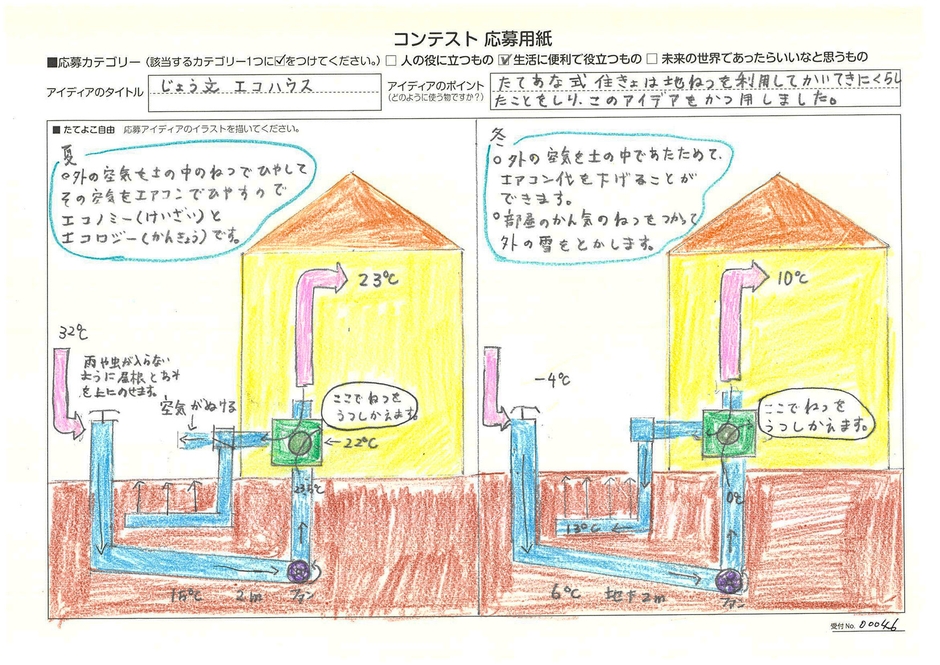 コンテスト 応募用紙
■応募カテゴリー (該当するカテゴリー1つに☑をつけてください。) □ 人の役に立つもの ☑ 生活に便利で役立つもの □ 未来の世界であったらいいなと思うもの
アイディアのタイトル じょう文 エコハウス
アイディアのポイント
(どのように使う物ですか?)
たてあな式 住きょは地ねつを利用してかいてきにくらし
たことをしり、このアイデアをかつ用しました。
■ たてよこ自由 応募アイディアのイラストを描いてください。
夏
○外の空気を土の中のねつでひやして
その空気をエアコンでひやすので
エコノミー(けいざい)と
エコロジー(かんきょう)です。
23℃
32℃
雨や虫が入らない
ように屋根とあみ
を上にのせます。
空気がぬける
ここでねつを
うつしかえます。
←22℃
23.5℃
15℃ 2m ファン
冬
○外の空気を土の中であたためて、
エアコン代を下げることが
できます。
○部屋のかん気のねつをつかって
外の雪をとかします。
10℃
-4℃
ここでねつを
うつしかえます。
0℃
13℃
6℃ 地下2m ファン
受付No. 00046